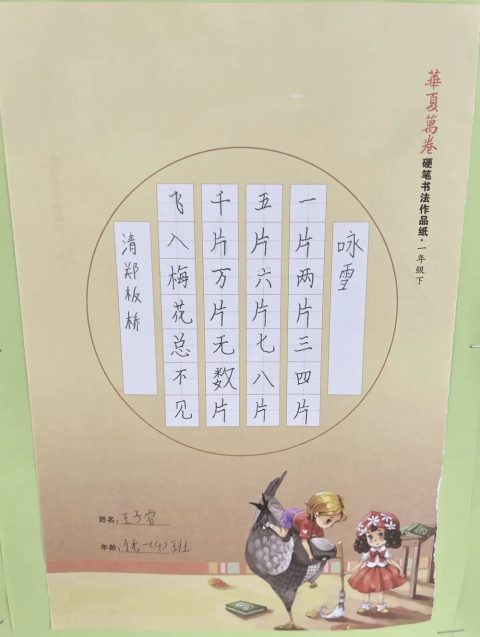 華夏萬卷
硬笔书法作品纸·一年级下
咏雪
一片两片三四片
五片六片七八片
千片万片无数片
飞入梅花总不见
清郑板桥
姓名：王予
年龄：一(4)班